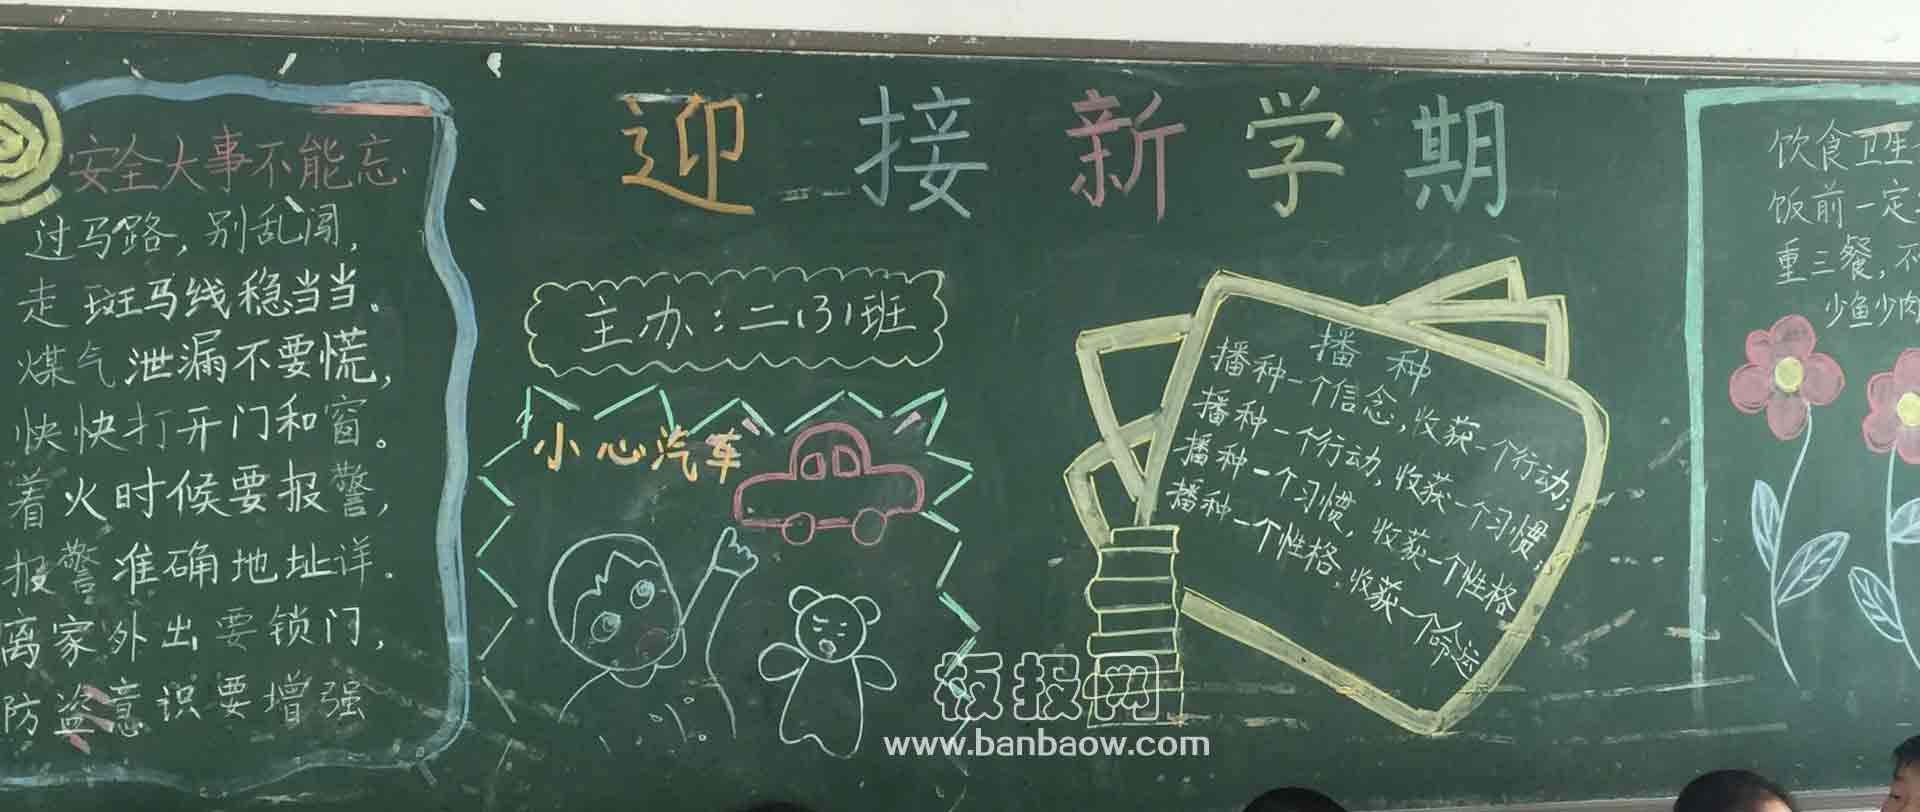 迎接新学期
安全大事不能忘
过马路，别乱闯，
走斑马线稳当当。
煤气泄漏不要慌，
快快打开门和窗。
着火时候要报警，
报警准确地址详。
离家外出要锁门，
防盗意识要增强
主办：二（3）班
小心汽车
播种
播种一个信念，收获一个行动；
播种一个行动，收获一个习惯；
播种一个习惯，收获一个性格
播种一个性格，收获一个命运
饮食卫生
饭前一定
重三餐，不
少鱼少肉
板报网
www.banbaow.com